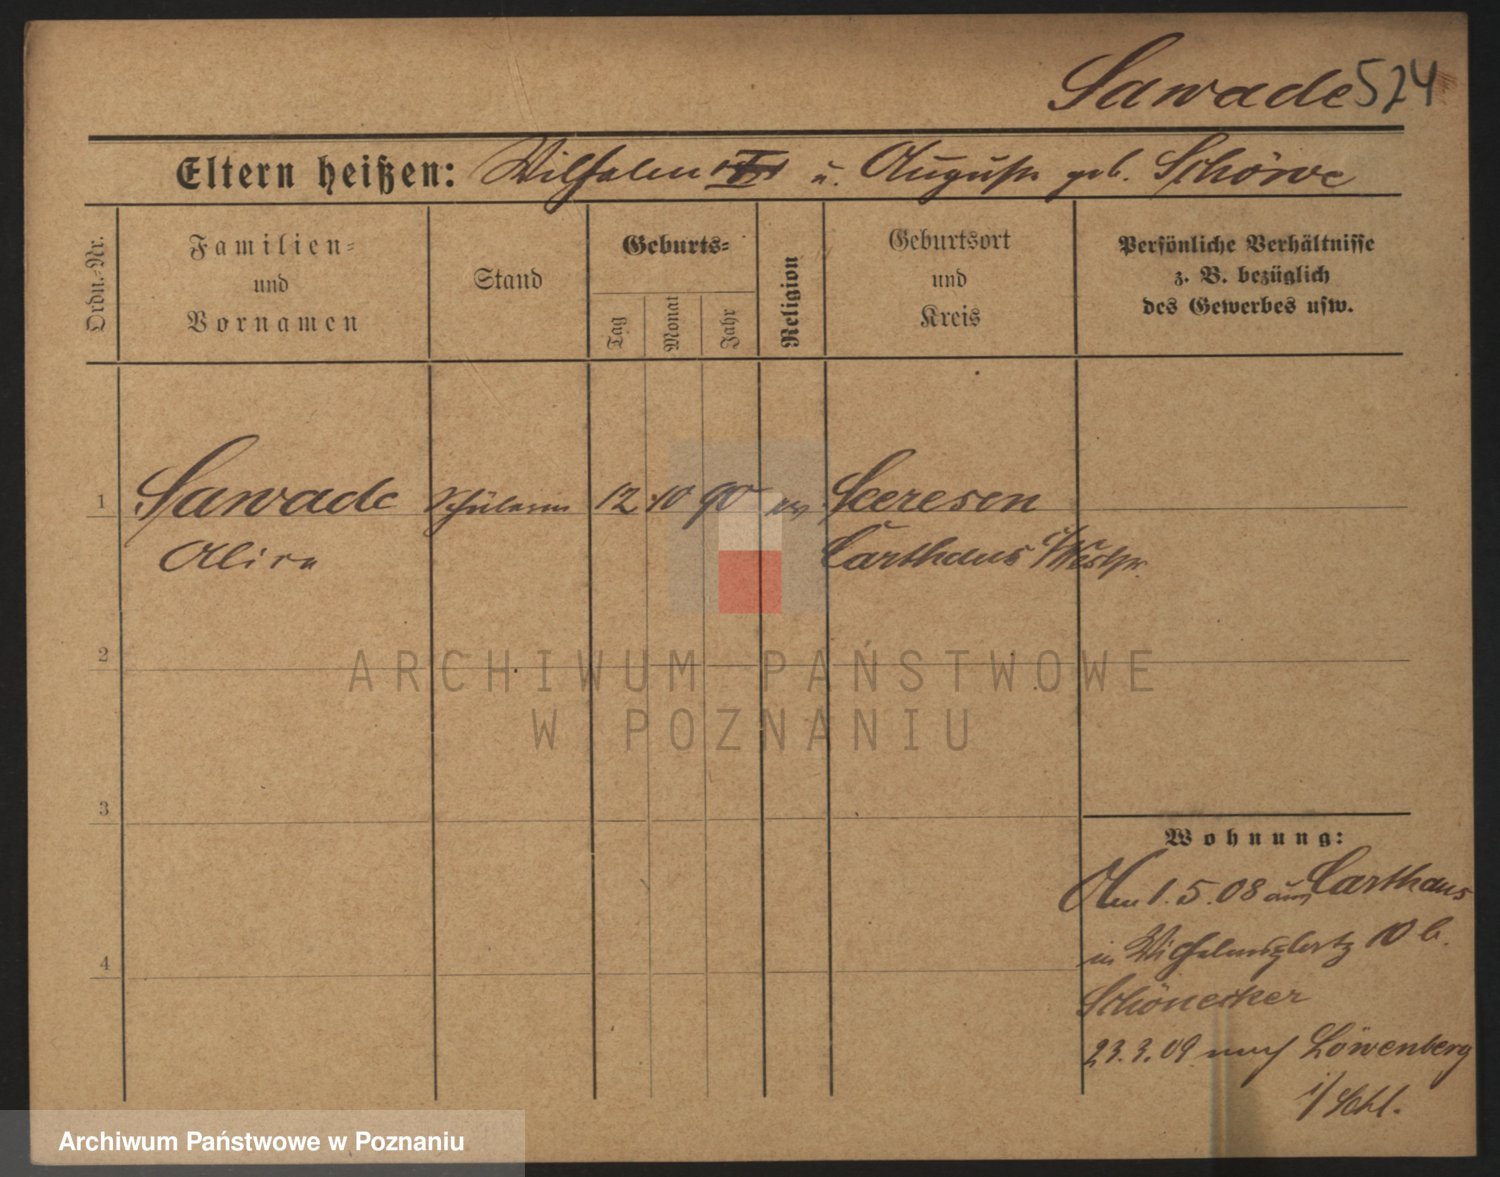 Sawade 524
Eltern heißen: Wilhelm u. Auguste geb. Schöwe
Ordn.-Nr.
Familien-
und
Vornamen
Stand
Geburts-
Tag
Monat
Jahr
Religion
Geburtsort
und
Kreis
Persönliche Verhältnisse
z. B. bezüglich
des Gewerbes usw.
1 Sawade Schülerin 12 10 90 ev Seeresen
Carthaus i/Westpr.
2
ARCHIWUM PAŃSTWOWE
W POZNANIU
3
Wohnung:
1.5.08 aus Carthaus
in Wilhelmsplatz 10 b.
4
Schönecker
23.3.09 nach Löwenberg
i/Schl.
Archiwum Państwowe w Poznaniu